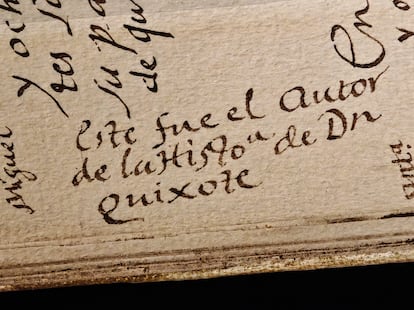 Miguel
y och
tes
su pa
de qu
Este fue el Autor
de la Histo.ª de Dn
Quixote
En
y